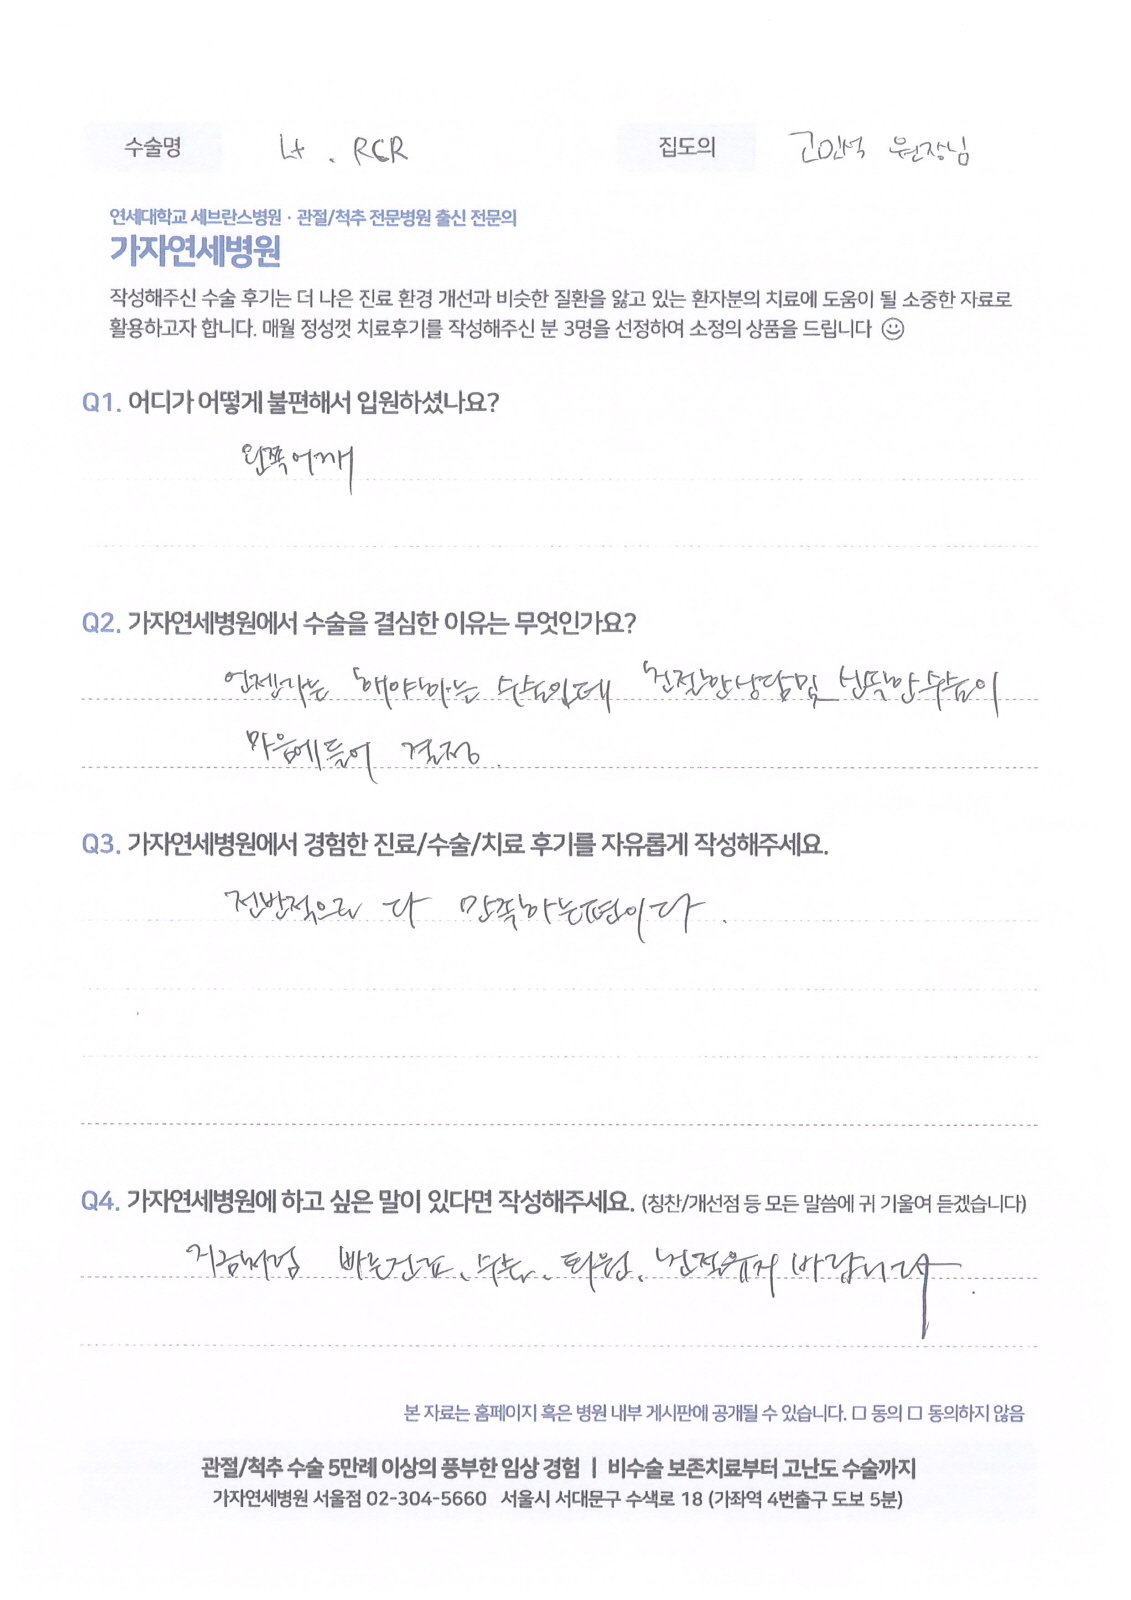 수술명 Lt. RCR 집도의 고민석 원장님
연세대학교 세브란스병원 · 관절/척추 전문병원 출신 전문의
가자연세병원
작성해주신 수술 후기는 더 나은 진료 환경 개선과 비슷한 질환을 앓고 있는 환자분의 치료에 도움이 될 소중한 자료로
활용하고자 합니다. 매월 정성껏 치료후기를 작성해주신 분 3명을 선정하여 소정의 상품을 드립니다 ☺
Q1. 어디가 어떻게 불편해서 입원하셨나요?
왼쪽어깨
Q2. 가자연세병원에서 수술을 결심한 이유는 무엇인가요?
언젠가는 해야하는 수술인데 친절한상담및 수술이
마음에들어 결정.
Q3. 가자연세병원에서 경험한 진료/수술/치료 후기를 자유롭게 작성해주세요.
전반적으로 다 만족하는편이다.
Q4. 가자연세병원에 하고 싶은 말이 있다면 작성해주세요. (칭찬/개선점 등 모든 말씀에 귀 기울여 듣겠습니다)
지금처럼 빠른진료、수술、퇴원、친절유지 바랍니다.
본 자료는 홈페이지 혹은 병원 내부 게시판에 공개될 수 있습니다. □ 동의 □ 동의하지 않음
관절/척추 수술 5만례 이상의 풍부한 임상 경험 | 비수술 보존치료부터 고난도 수술까지
가자연세병원 서울점 02-304-5660 서울시 서대문구 수색로 18 (가좌역 4번출구 도보 5분)